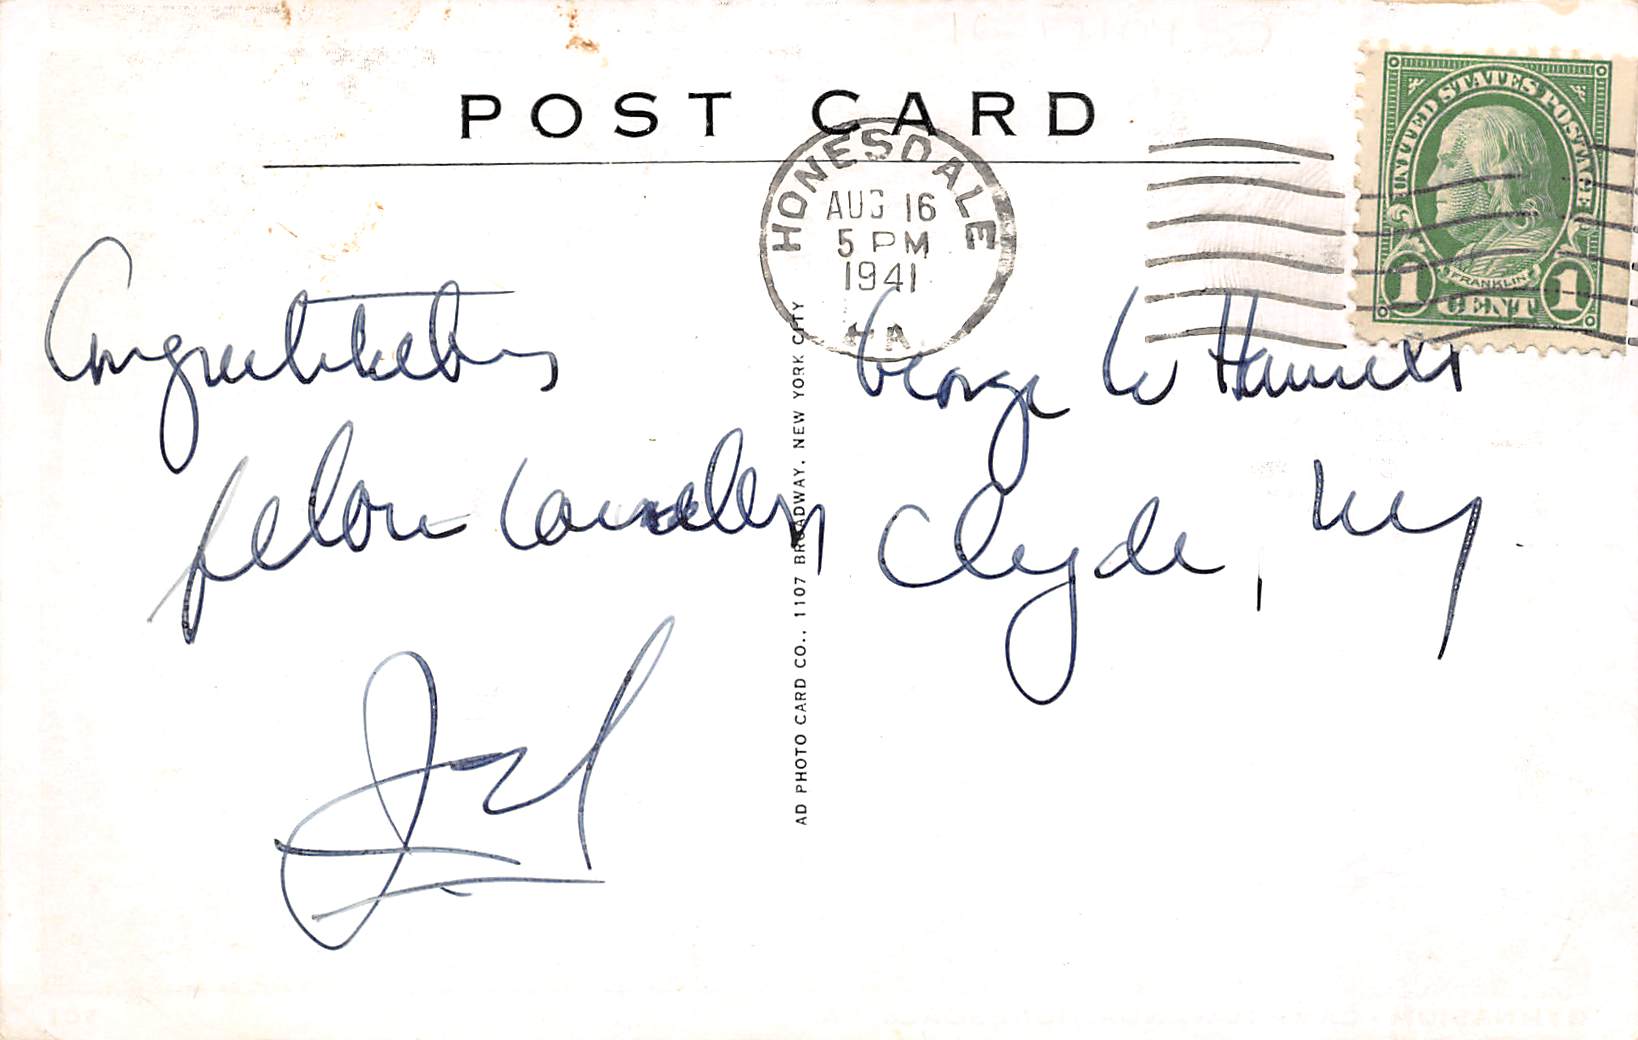 POST CARD
HONESDALE
AUG 16
5 PM
1941
PA
UNITED STATES POSTAGE
FRANKLIN
1 CENT 1
Congratulations
fellow
George W
Clyde, NY
AD PHOTO CARD CO., 1107 BROADWAY, NEW YORK CITY